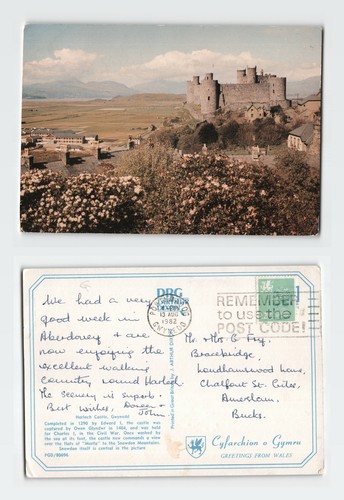 We had a very
good week in
Aberdovey & are
now enjoying the
excellent walking
country round Harlech.
The scenery is superb.
Best Wishes, Doreen
John.
Harlech Castle, Gwynedd
Completed in 1290 by Edward I, the castle
was captured by Owen Glyndwr in 1404, and was held
for Charles I, in the Civil War. Once washed by
the sea at its foot, the castle now commands a view
over the flats of "Morfa" to the Snowdon Mountains.
Snowdon itself is central in the picture
DRG
13 AUG
1982
GWYNEDD
REMEMBER
to use the
POST CODE!
Mr. & Mrs. E. Fry,
Bracebridge,
Chalfont St. Giles,
Amersham,
Bucks.
Printed in Great Britain by J. ARTHUR DIXON
Cyfarchion o Gymru
GREETINGS FROM WALES